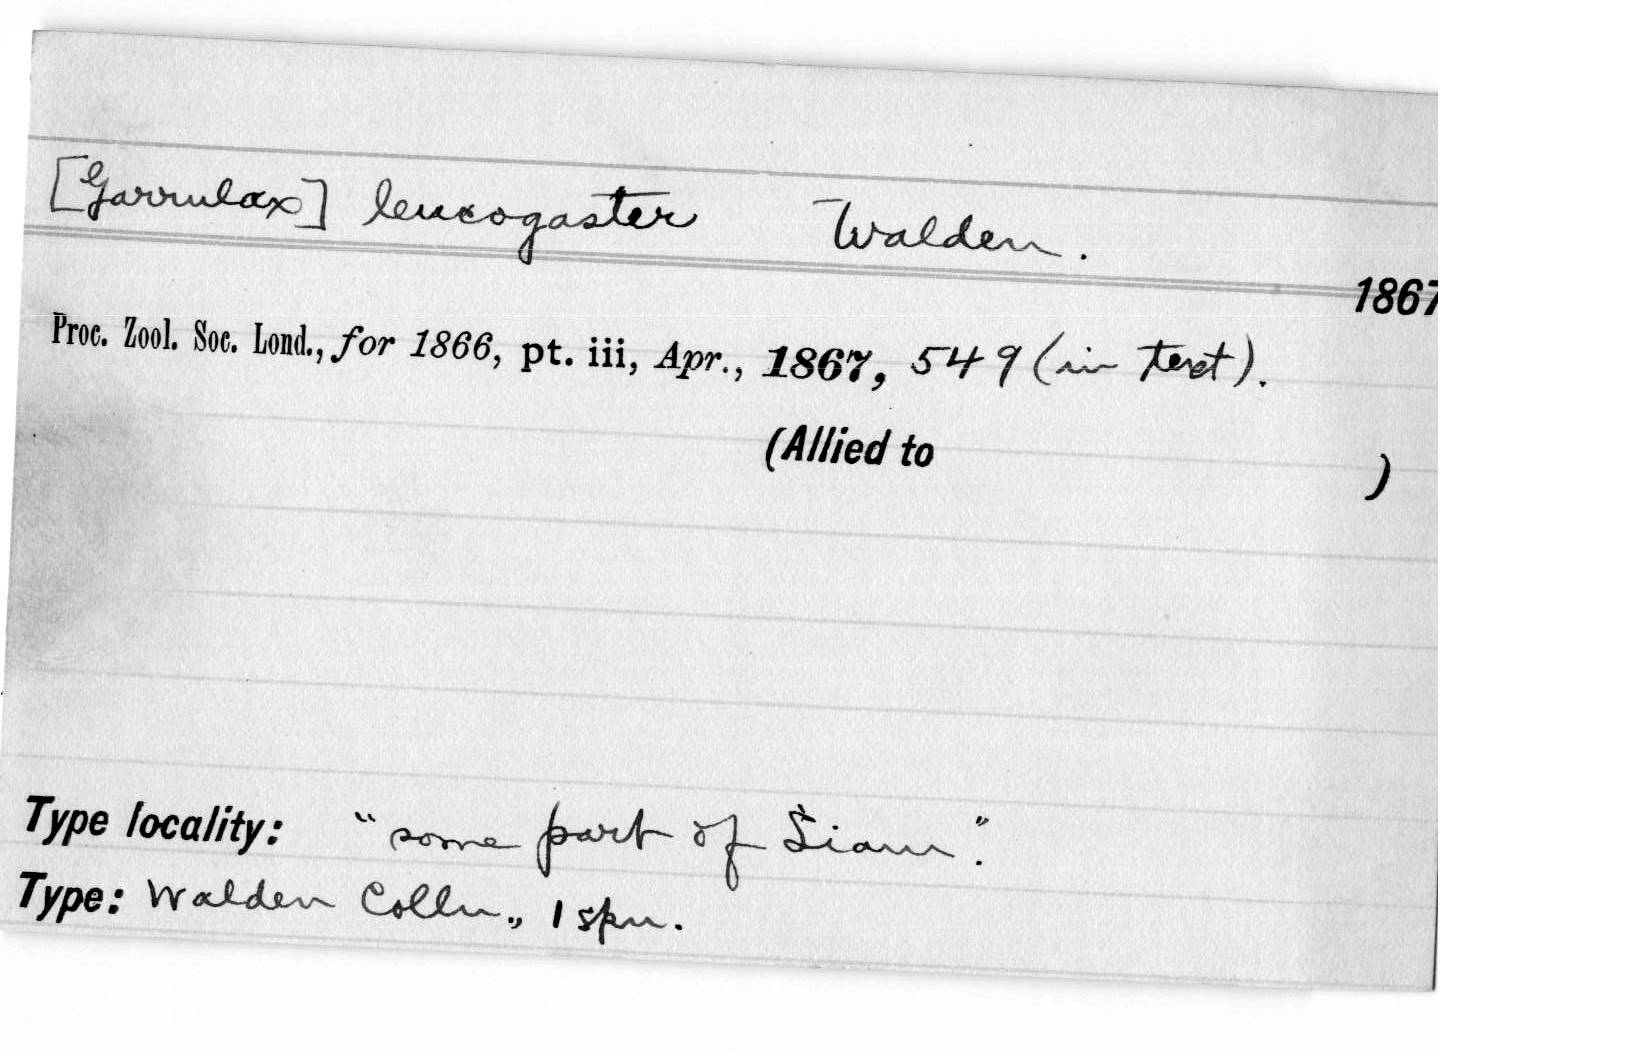 [Garrulax] leucogaster Walden.
1867
Proc. Zool. Soc. Lond., for 1866, pt. iii, Apr., 1867, 549 (in text).
(Allied to )
Type locality: "some part of Siam".
Type: Walden Colln., 1 spn.